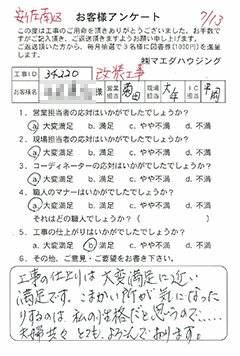 安佐南区
お客様アンケート
7/13
この度は工事のご用命を頂きありがとうございました。お手数で
すがご記入頂き、ご返送頂きますようお願い申し上げます。
ご返送頂いた方から、毎月抽選で3名様に図書券(1000円)を進呈
します。
㈱マエダハウジング
工事ID 34220 改装工事
お客様名 様 営業担当 現場担当 IC担当 平岡
1．営業担当者の応対はいかがでしたでしょうか?
a.大変満足 b.満足 c.やや不満 d.不満
2．現場担当者の応対はいかがでしたでしょうか?
a.大変満足 b.満足 c.やや不満 d.不満
3．コーディネーターの応対はいかがでしたでしょうか?
a.大変満足 b.満足 c.やや不満 d.不満
4．職人のマナーはいかがでしたでしょうか?
a.大変満足 b.満足 c.やや不満 d.不満
それはどの職人でしょうか?( )
5．工事の仕上がりはいかがでしたでしょうか?
a.大変満足 b.満足 c.やや不満 d.不満
6．その他、ご意見・ご要望をお書き下さい。
工事の仕上りは大変満足に近い
満足です。こまかい所が気になった
りするのは私の性格だと思うので‥‥
夫婦共々とても、よろこんでおります。